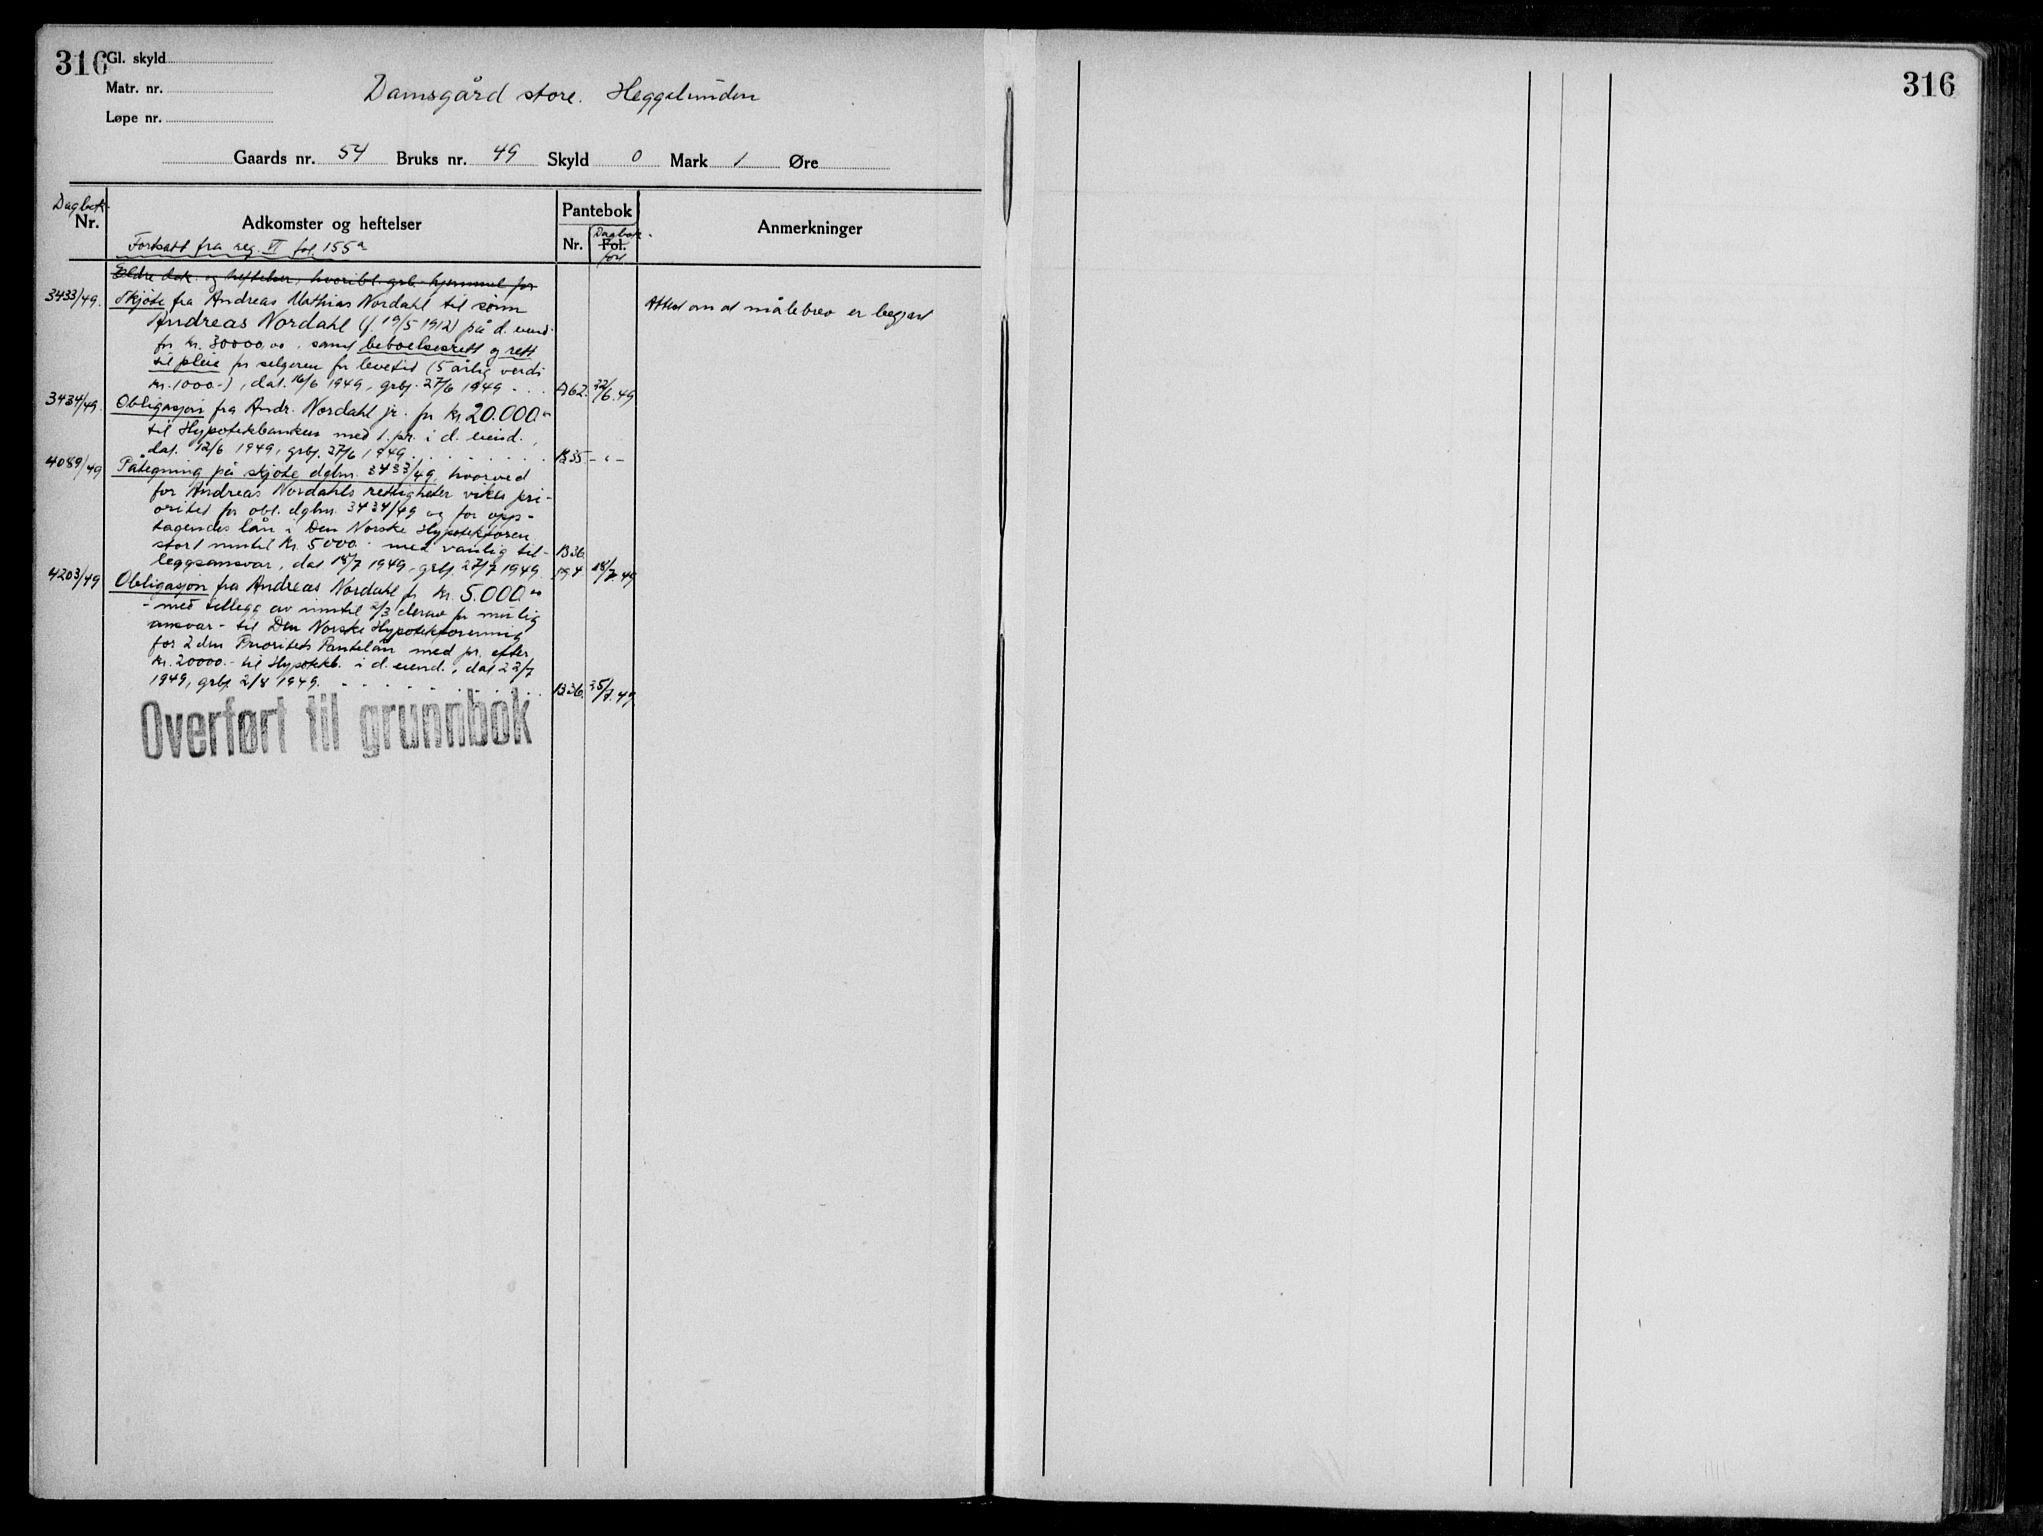 316 Gl. skyld
Matr. nr.
Løpe nr.
Damsgård store. Heggelunden
Gaards nr. 54 Bruks nr. 49 Skyld 0 Mark 1 Øre
Dagbok-
Nr. Adkomster og heftelser Pantebok Anmerkninger
Nr. Fol. Dagbok-
Fortsatt fra reg. VI fol. 155a
Eldre dok. og heftelser, hvoribl. grb. hjemmel for
3433/49. Skjøte fra Andreas Mathias Nordahl til sønn
Attest om at målebrev er begjært
Andreas Nordahl (f. 19/5 1912) på d. eiend.
for kr. 30000,00, samt beboelsesrett og rett
til pleie for selgeren for levetid (5 årlig verdi
kr. 1000.-), dat. 16/6 1949, grbf. 27/6 1949 . . . A62. 22/6.49
3434/49. Obligasjon fra Andr. Nordahl jr. for kr. 20.000.00
til Hypotekbanken med 1. pr. i d. eiend.,
dat. 12/6 1949, grbf. 27/6 1949 . . . . . . . . B35 - " -
4089/49 Påtegning på skjøte dgbnr. 3433/49, hvorved
for Andreas Nordahls rettigheter vikes pri-
oritet for obl. dgbnr. 3434/49 og for opp-
tagendes lån i Den Norske Hypotekforen.
stort inntil kr. 5000.- med vanlig til- B36
leggsansvar, dat 18/7 1949, grbf. 27/7 1949. 194 18/7.49
4203/49 Obligasjon fra Andreas Nordahl for kr. 5.000.00
- med tillegg av inntil 2/3 derav for mulig
ansvar - til Den Norske Hypotekforening
for 2den Prioritets Pantelån med pr. efter
kr. 20000.- til Hypotekb. i d. eiend., dat 22/7
1949, grbf 2/8 1949. . . . . . . . . . . B36. 25/7.49
Overført til grunnbok
316